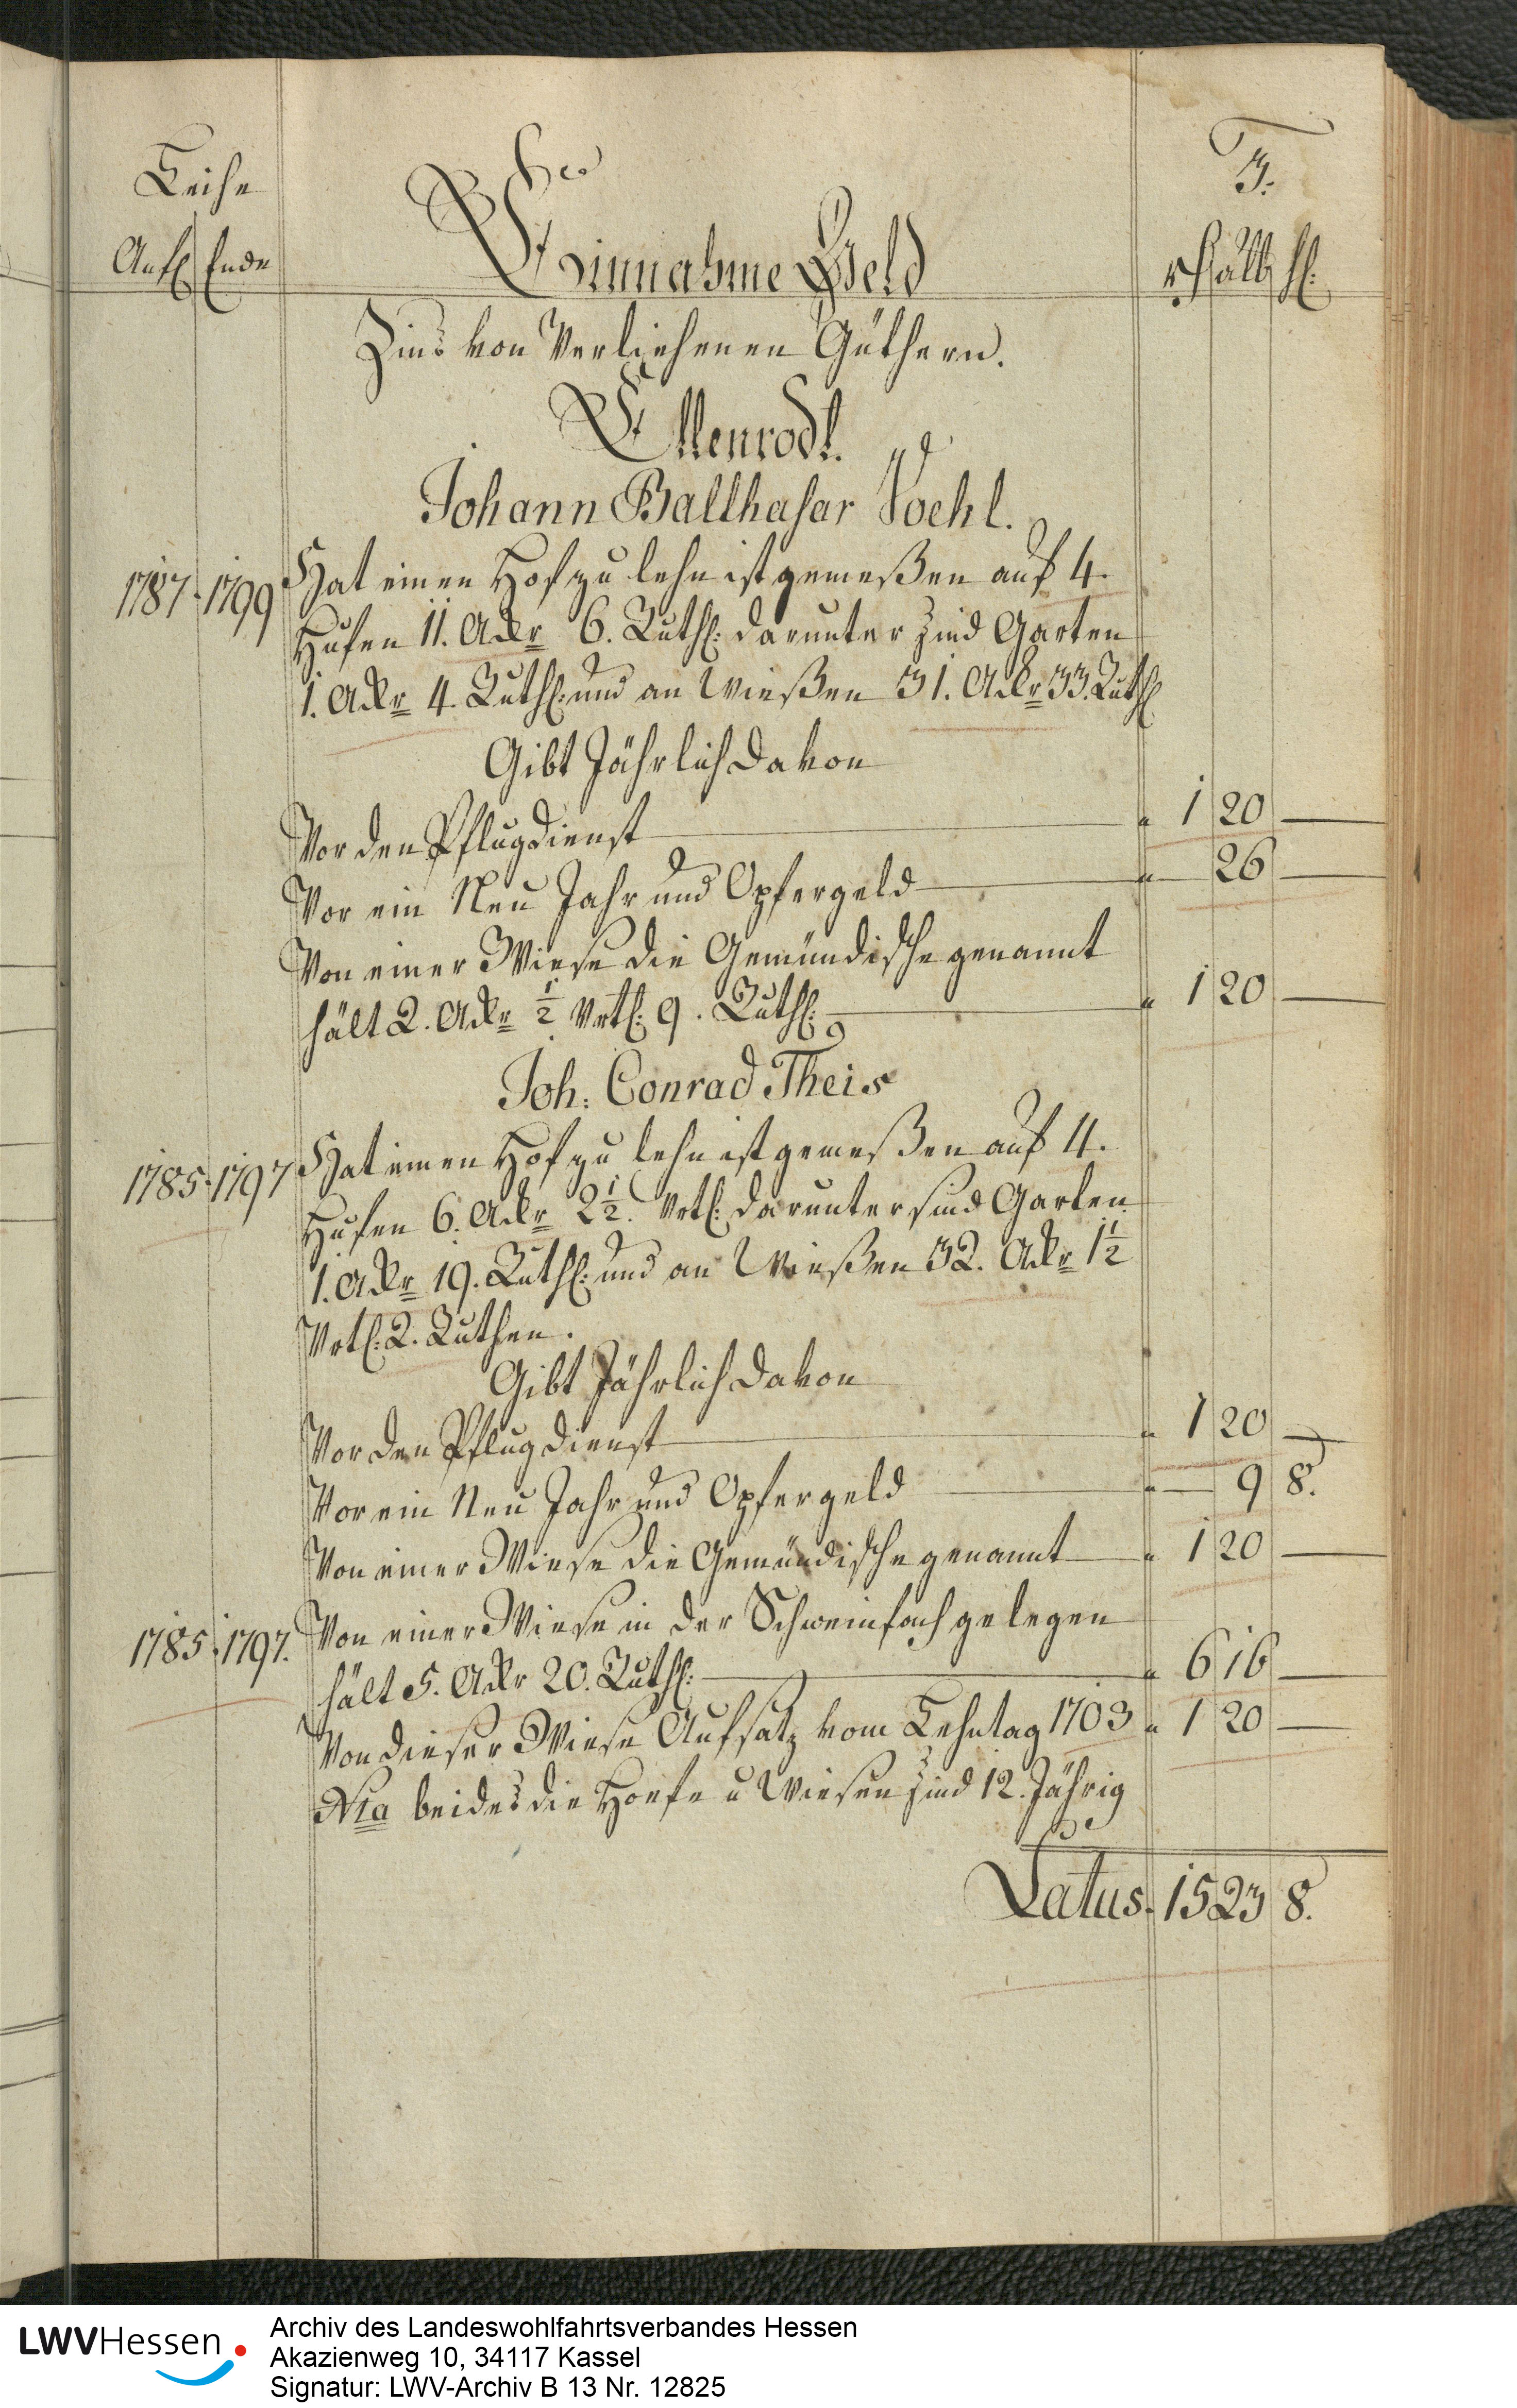 Leihe
3.
Einnahme Geld
Anf: Ende
rh alb hl:
Zins von Verliehenen Güthern.
Ellenrodt.
Johann Balthasar Voehl.
1787-1799 Hat einen Hof zu lehn ist gemeßen auf 4.
Hufen 11. Ackr 6. Ruth: darunter sind Garten
1. Ackr 4. Ruth: und an Wießen 31. Ackr 33. Ruth:
Gibt Jährlich davon
Vor den Pflugdienst — " 1 20 —
Vor ein Neu Jahr und Opfergeld — " — 26 —
Von einer Wiese die Gemündische genannt
hält 2. Ackr ½ Vrtl: 9. Ruth: — " 1 20 —
Joh: Conrad Theis
1785-1797 Hat einen Hof zu lehn ist gemeßen auf 4.
Hufen 6. Ackr 2½. Vrtl: darunter sind Garten
1. Ackr 19. Ruth: und an Wießen 32. Ackr 1½
Vrtl: 2. Ruthen.
Gibt Jährlich davon
Vor den Pflugdienst — " 1 20 —
Vor ein Neu Jahr und Opfergeld — " — 9 8.
Von einer Wiese die Gemündische genannt — " 1 20 —
1785-1797. Von einer Wiese in der Schweinfach gelegen
hält 5. Ackr 20. Ruth: — " 6 16 —
Von dieser Wiese Aufsatz vom Lehntag 1703 " 1 20 —
Nta beides die Hoefe u Wiesen sind 12. Jährig
Latus. 15 23 8.
LWVHessen
Archiv des Landeswohlfahrtsverbandes Hessen
Akazienweg 10, 34117 Kassel
Signatur: LWV-Archiv B 13 Nr. 12825